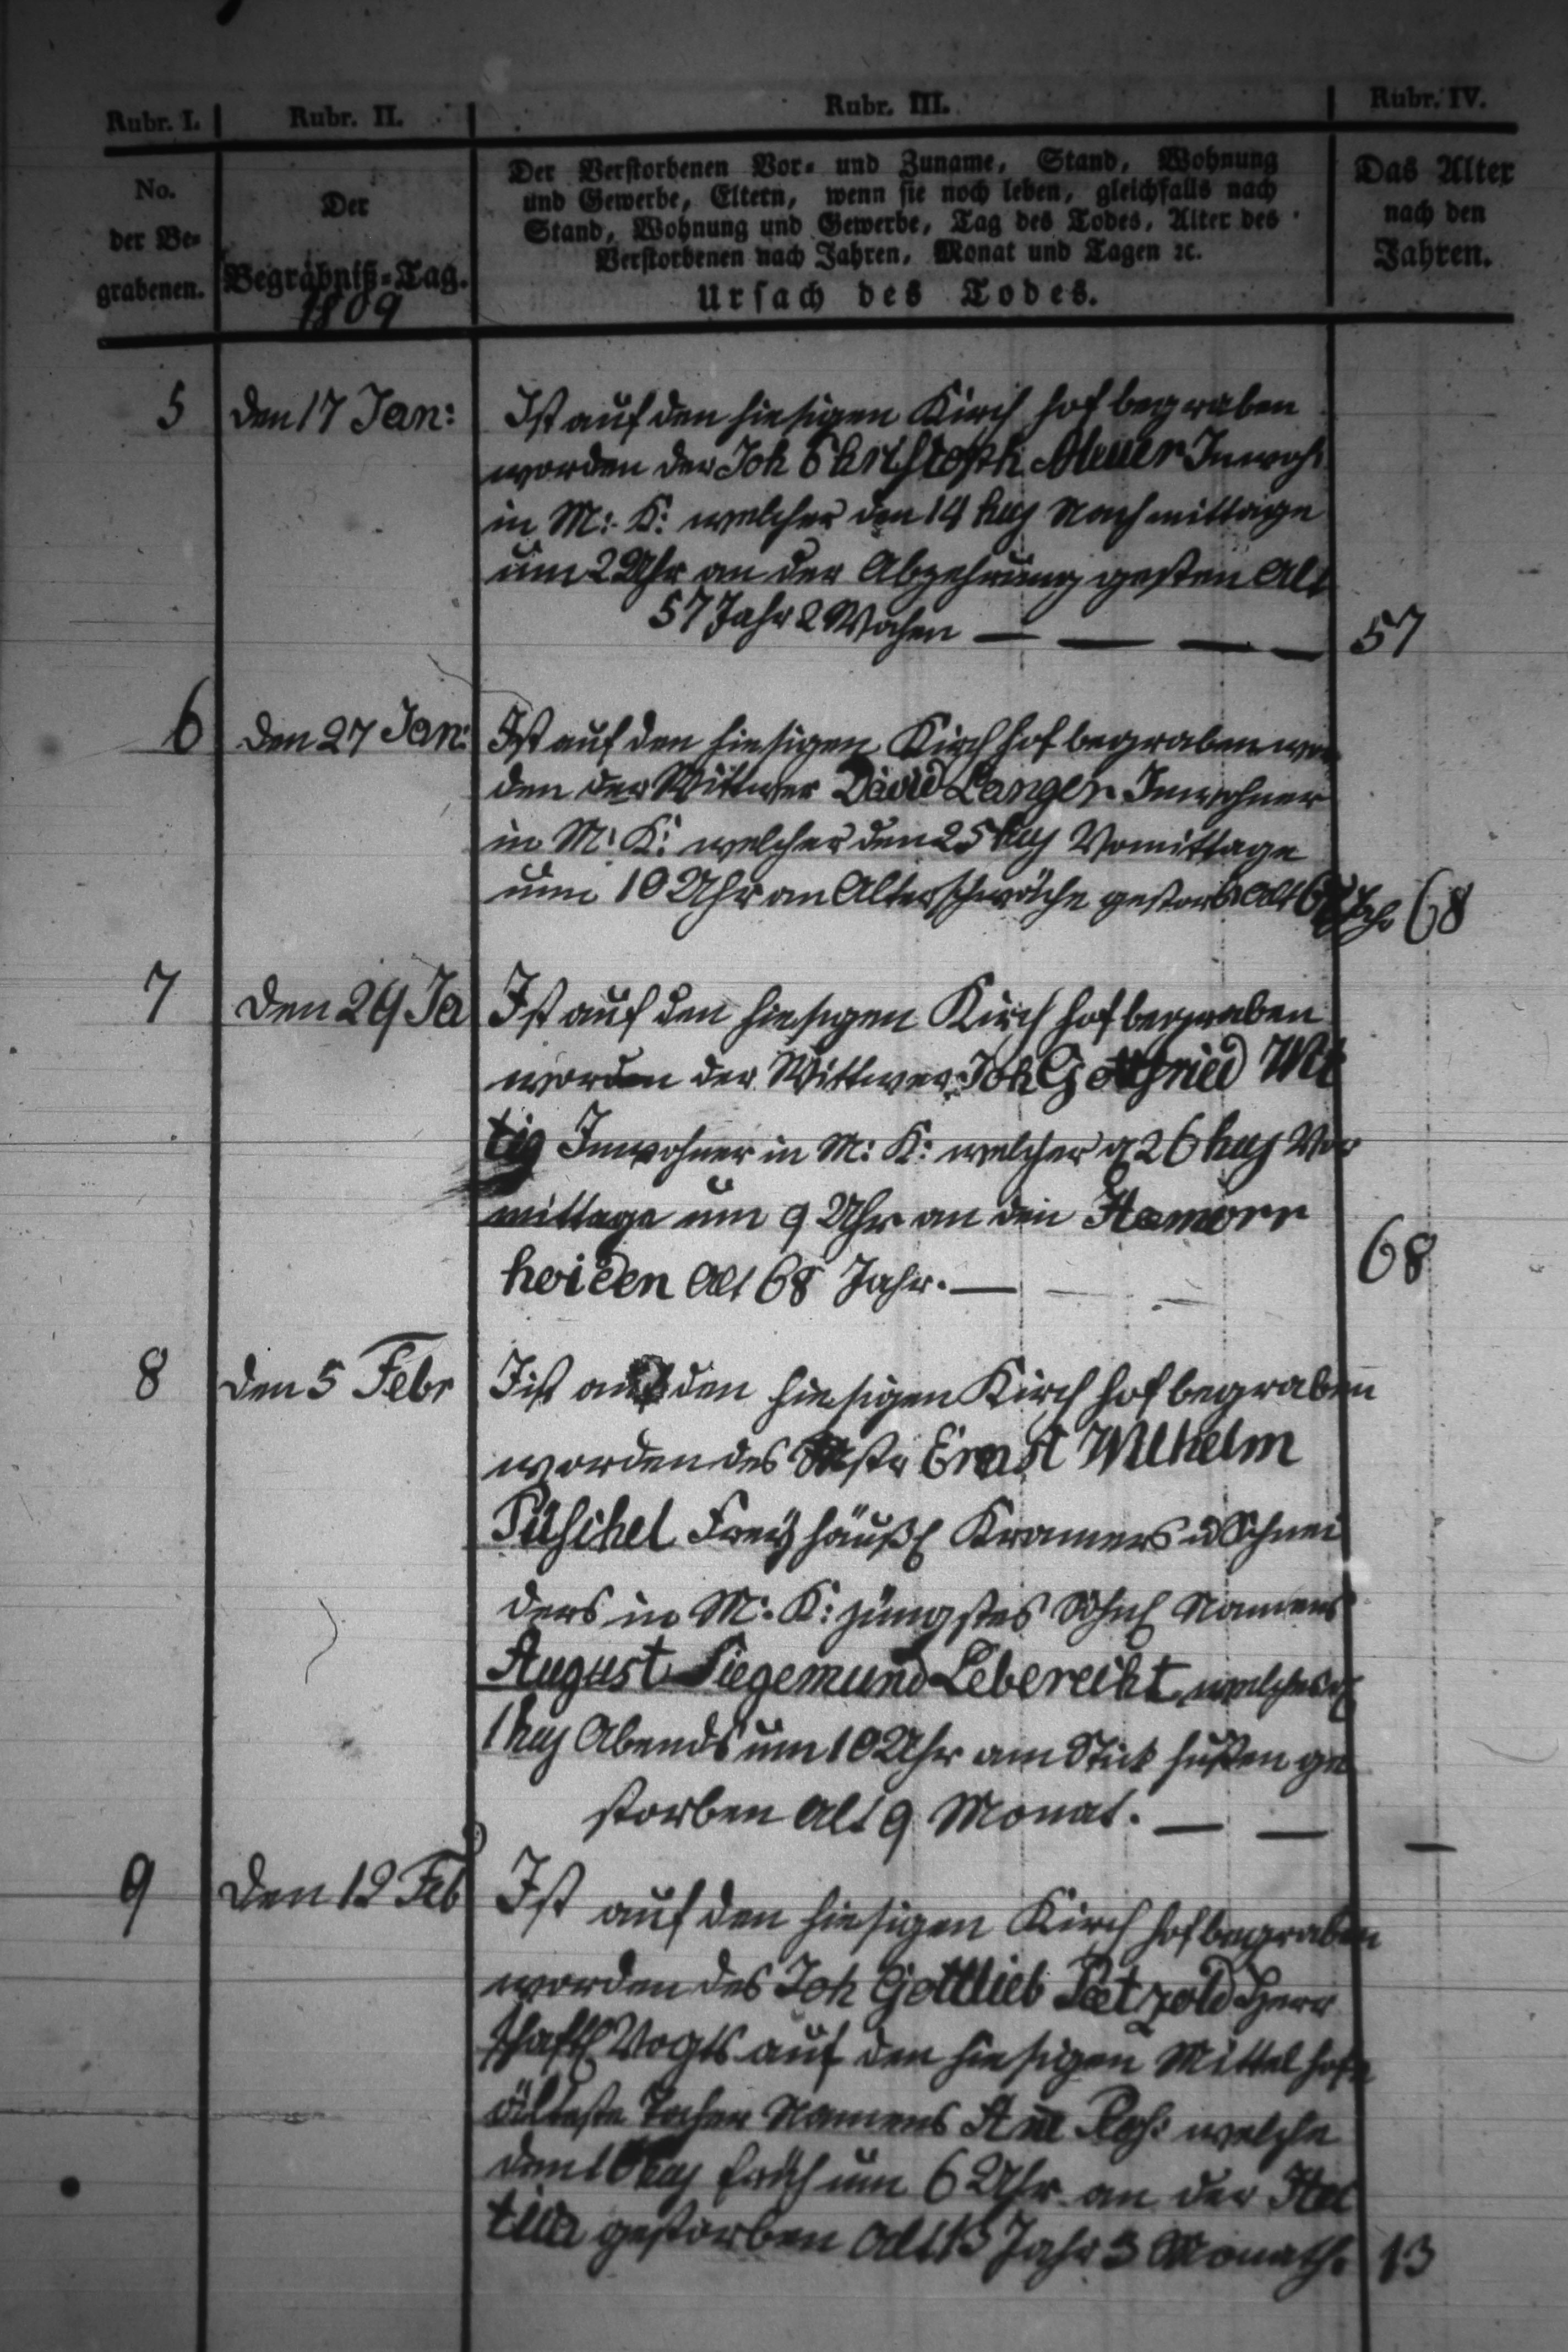 Rubr. I. Rubr. II. Rubr. III. Rubr. IV.
No.
der Be=
grabenen.
Der
Begräbniß=Tag.
1809
Der Verstorbenen Vor= und Zuname, Stand, Wohnung
und Gewerbe, Eltern, wenn sie noch leben, gleichfalls nach
Stand, Wohnung und Gewerbe, Tag des Todes, Alter des
Verstorbenen nach Jahren, Monat und Tagen ꝛc.
Ursach des Todes.
Das Alter
nach den
Jahren.
5 den 17 Jan: Ist auf den hiesigen Kirch hof begraben
worden der Joh Christoph Inwoh
in M: K: welcher den 14 huj Nachmittage
um 2 Uhr an der Abzehrung gesten Alt
57 Jahr 2 Wochen — — — — 57
6 den 27 Jan: Ist auf den hiesigen Kirch hof begraben wor
den der Wittwer David Langer Inwohner
in M: K: welcher den 25 huj Vomittage
um 10 Uhr an Alterschwäche gestorb Alt 68 Jahr 68
7 den 29 Ja Ist auf den hiesigen Kirch hof begraben
worden der Wittwer Joh Gottfried Wit
tig Inwohner in M: K: welcher d 26 huj Vor
mittage um 9 Uhr an den Hämorr
hoiden Alt 68 Jahr. — 68
8 den 5 Febr Ist auf den hiesigen Kirch hof begraben
worden des Mstr Ernst Wilhelm
Püschel Freyhäußl Kramers u Schnei
ders in M: K: jüngstes Söhnl Namens
August Siegemund Leberecht welches d
1 huj Abends um 10 Uhr am Stick husten ge
storben Alt 9 Monat. — — —
9 den 12 Feb Ist auf den hiesigen Kirch hof begraben
worden des Joh Gottlieb Petzold Herr
schaftl Vogts auf den hiesigen Mittel hofe
älteste Tochter Namens Ane Ros: welche
den 10 huj früh um 6 Uhr an der Hec
tica gestorben Alt 13 Jahr 3 Monath. 13